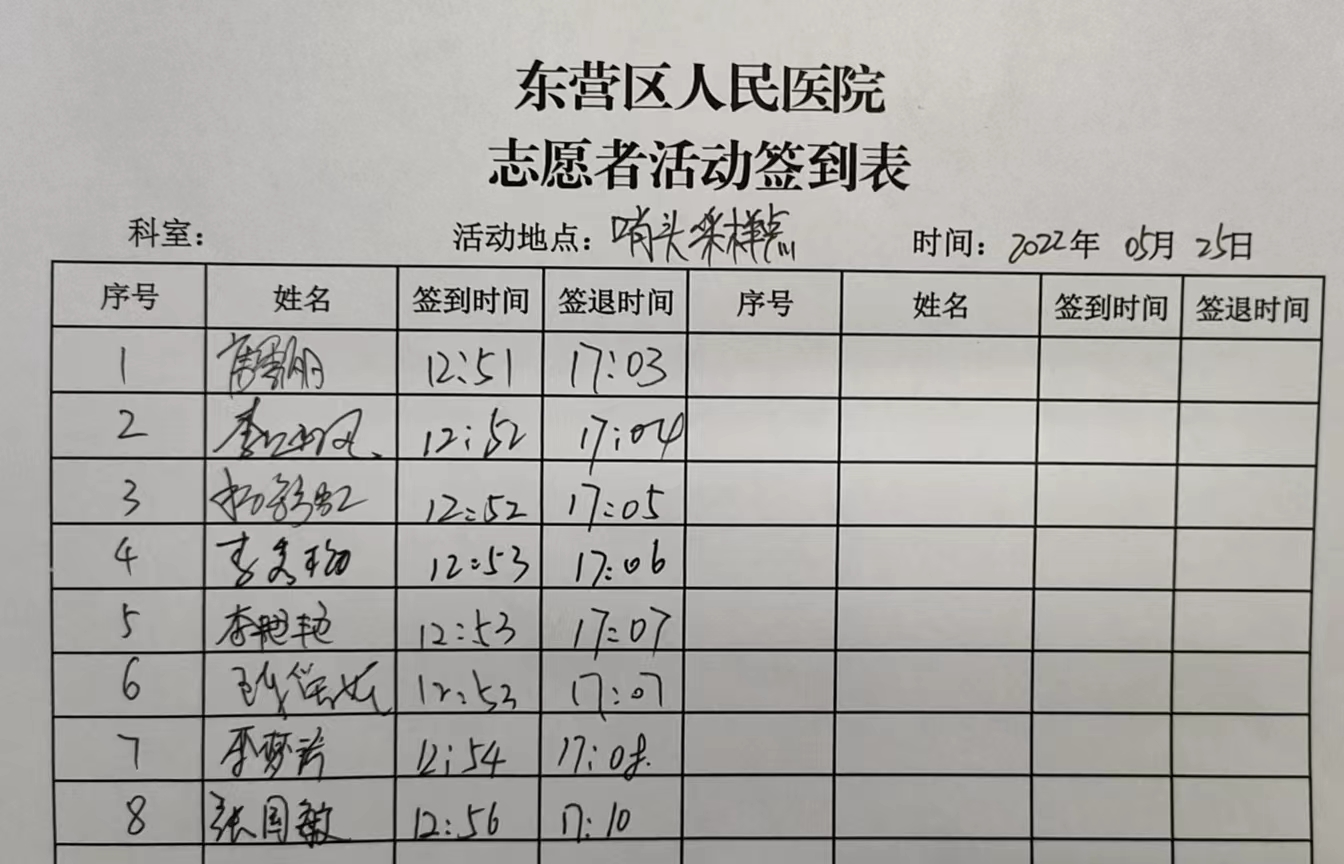 东营区人民医院
志愿者活动签到表
科室： 活动地点：哨头采样点 时间：2022年 05月 25日
序号 姓名 签到时间 签退时间 序号 姓名 签到时间 签退时间
1 12:51 17:03
2 12:52 17:04
3 12:52 17:05
4 12:53 17:06
5 李艳艳 12:53 17:07
6 12:53 17:07
7 李梦 12:54 17:08
8 张国敏 12:56 17:10